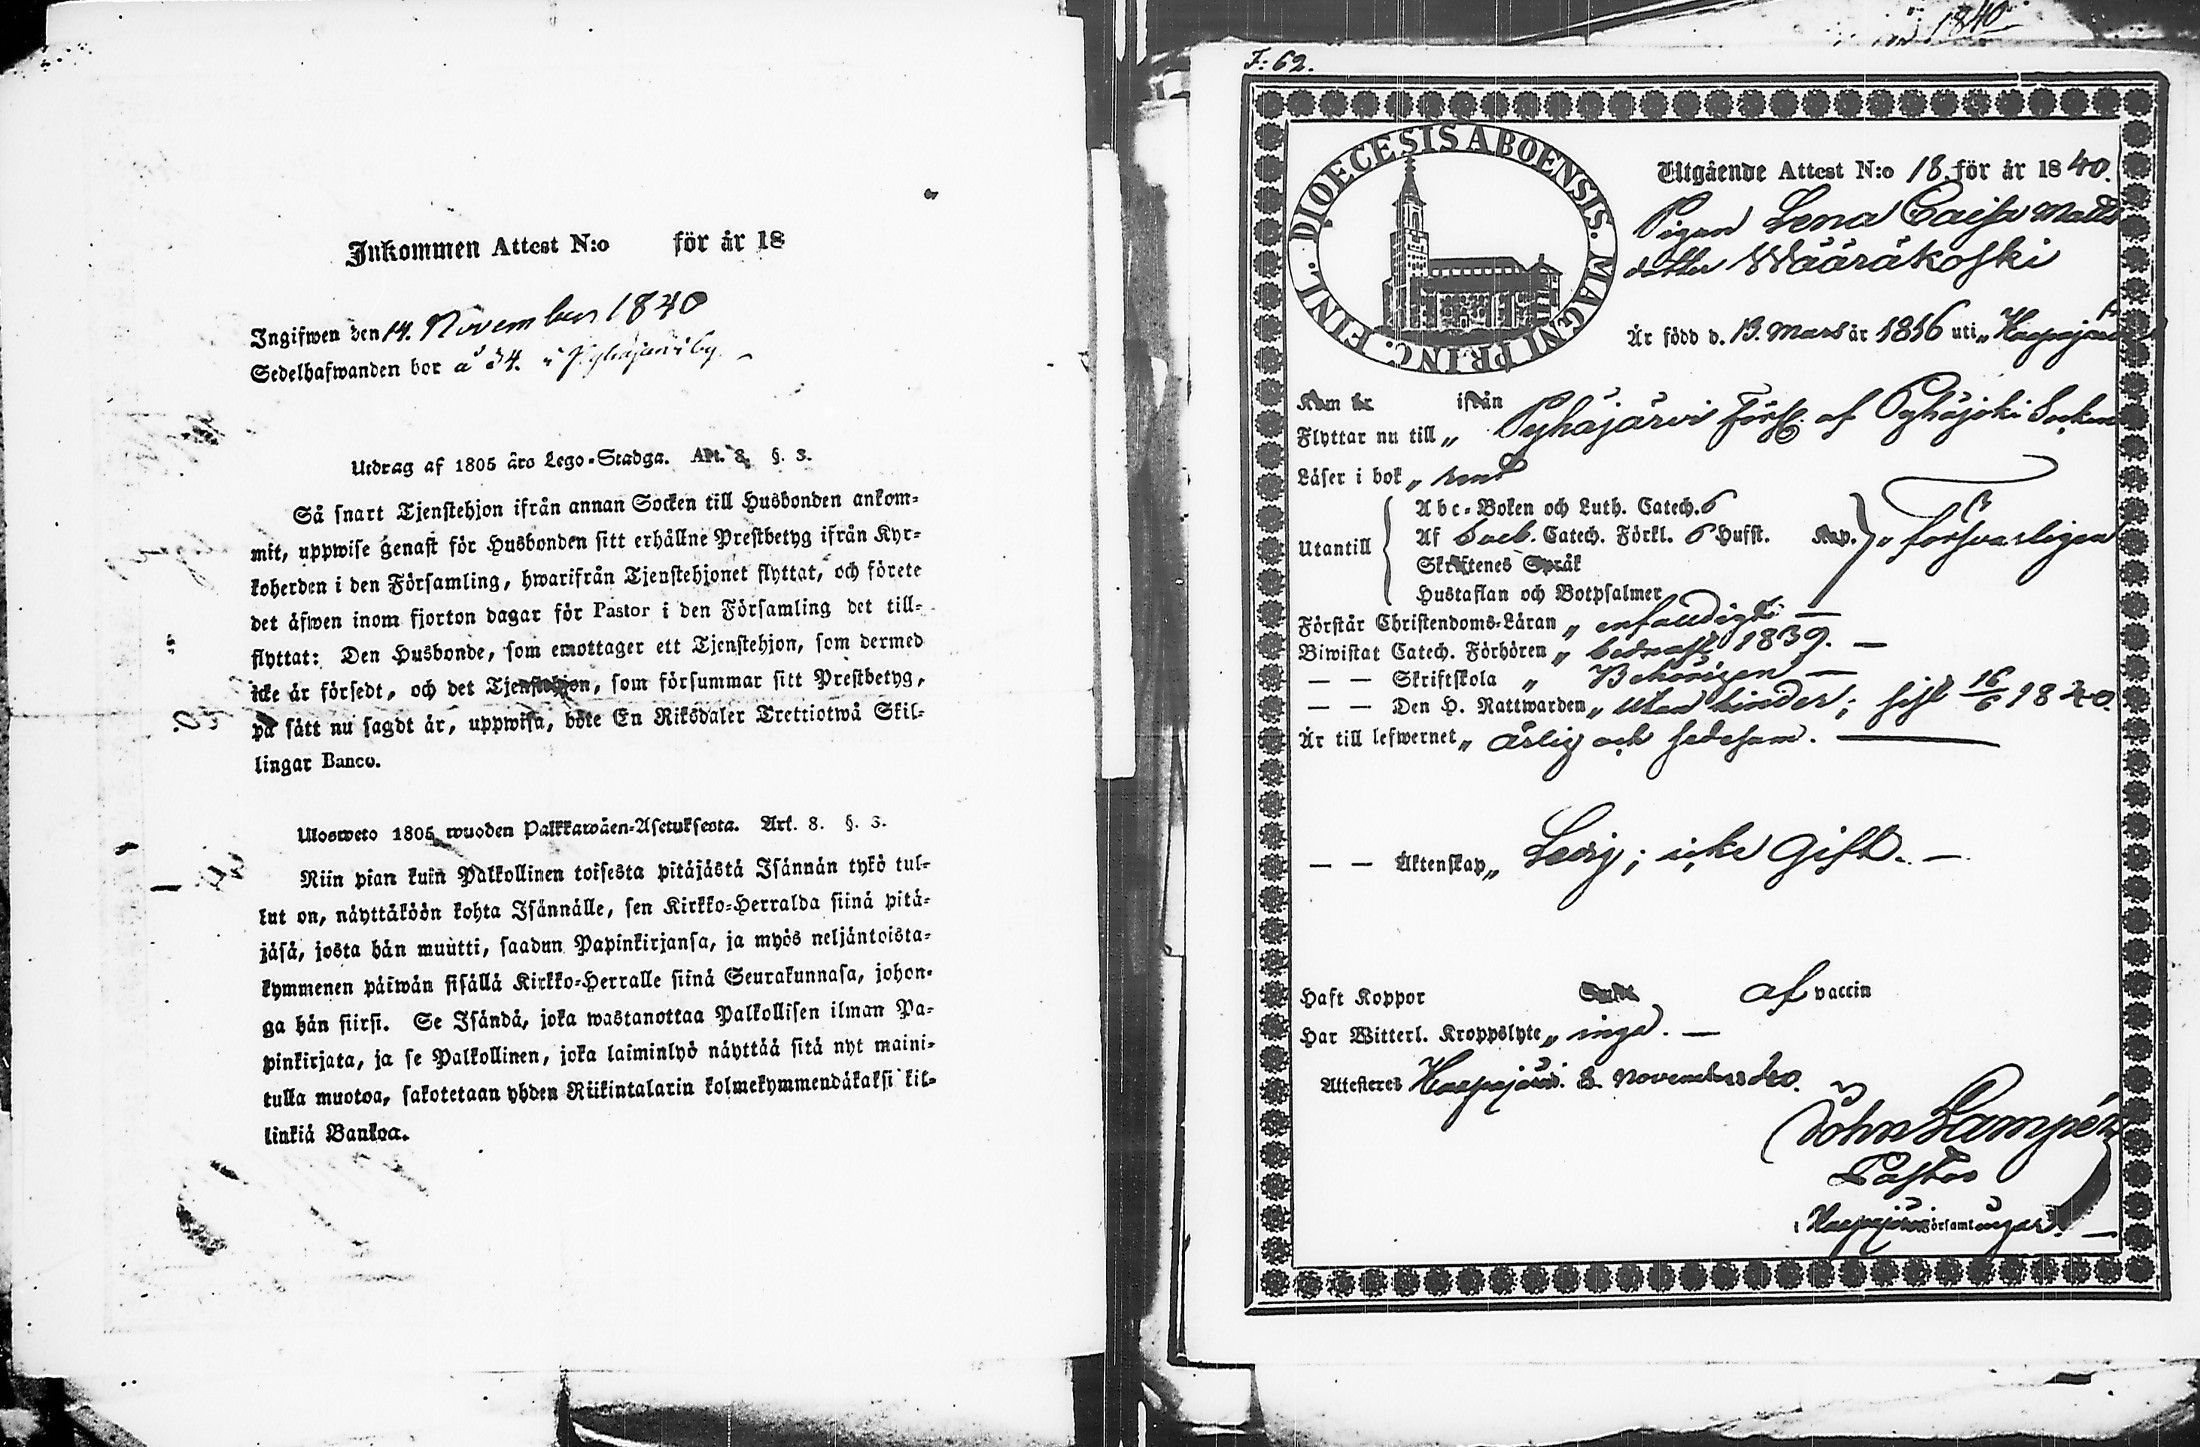 Inkommen Attest N:o för år 18
Ingifwen den 14. November 1840
Sedelhafwanden bor å 24. i Pyhäjärvi by.
Utdrag af 1805 års Lego-Stadga. Art. 8. §. 3.
Så snart Tjenstehjon ifrån annan Socken till Husbonden ankom-
mit, uppwise genast för Husbonden sitt erhållne Prestbetyg ifrån Kyr-
koherden i den Församling, hwarifrån Tjenstehjonet flyttat, och förete
det äfwen inom fjorton dagar för Pastor i den Församling det till-
flyttat: Den Husbonde, som emottager ett Tjenstehjon, som dermed
icke är försedt, och det Tjenstehjon, som försummar sitt Prestbetyg,
på sätt nu sagdt är, uppwisa, böte En Riksdaler Trettiotwå Skil-
lingar Banco.
Ulosweto 1805 wuoden Palkkawäen-Asetuksesta. Art. 8. §. 3.
Niin pian kuin Palkollinen toisesta pitäjästä Isännän tykö tul-
lut on, näyttäköön kohta Isännälle, sen Kirkko-Herralda siinä pitä-
jäsä, josta hän muutti, saadun Papinkirjansa, ja myös neljäntoista-
kymmenen päiwän sisällä Kirkko-Herralle siinä Seurakunnasa, johon-
ga hän siirsi. Se Isändä, joka wastanottaa Palkollisen ilman Pa-
pinkirjata, ja se Palkollinen, joka laiminlyö näyttää sitä nyt maini-
tulla muotoa, sakotetaan yhden Riikintalarin kolmekymmendäkaksi kil-
linkiä Bankoa.
1840
F: 62.
DIOECESIS ABOENSIS. MAGNI PRINC. FINL.
Utgående Attest N:o 18. för år 1840.
Pigan Lena Caisa Matts
dotter Wääräkoski
Är född d. 13. Mars år 1816 uti Haapajärvi
Kom år ifrån
Flyttar nu till Pyhäjärvi Förs. af Pyhäjoki Socken
Läser i bok rent
Abc-Boken och Luth. Catech. 6
Utantill Af Sveb. Catech. Förkl. 6 Hufst. Kap. försvarligen
Skriftenes Språk
Hustaflan och Botpsalmer
Förstår Christendoms-Läran enfaldigt
Biwistat Catech. Förhören sednast 1839.
— — Skriftskola Behörigen
— — Den H. Nattwarden utan hinder; sist 16/6 1840.
Är till lefwernet ärlig och sedesam.
— — Äktenskap Ledig; icke gift.
Haft Koppor af vaccin
Har Witterl. Kroppslyte inga.
Attesteras Haapajärvi. 8. November 1840.
Joh. Lampén
Pastor
i Haapajärvi församlingar.